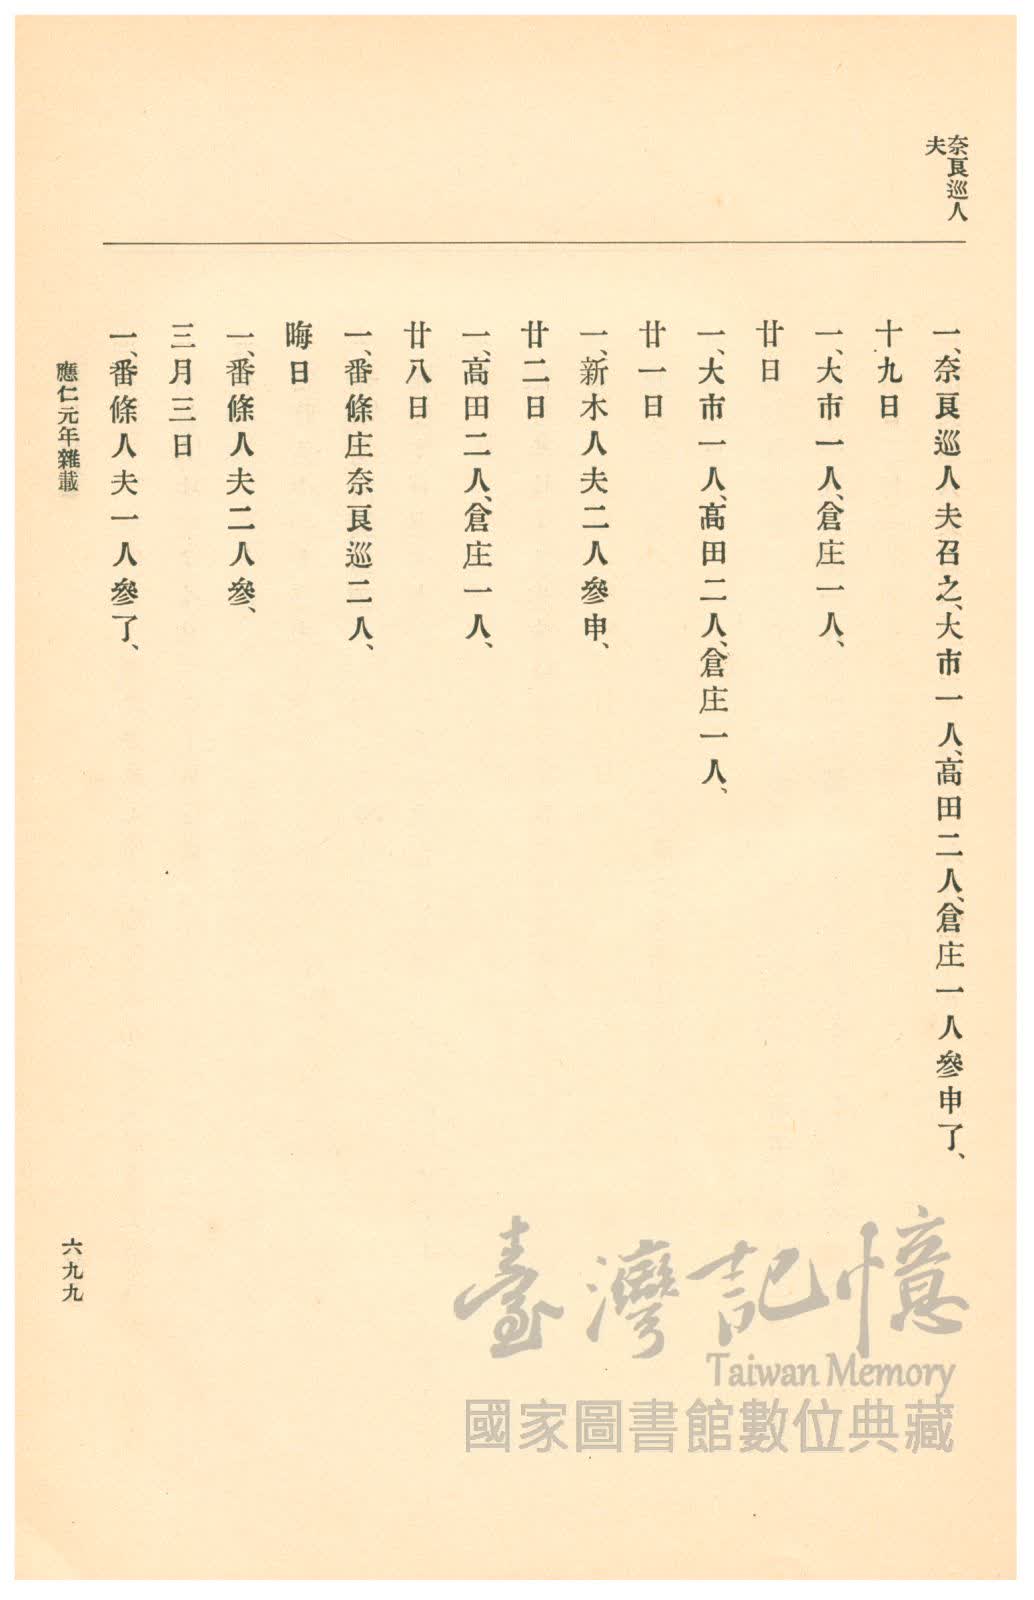 奈良巡人
夫
一、奈良巡人夫召之、大市一人、高田二人、倉庄一人參申了、
十九日
一、大市一人、倉庄一人、
廿日
一、大市一人、高田二人、倉庄一人、
廿一日
一、新木人夫二人參申、
廿二日
一、高田二人、倉庄一人、
廿八日
一、番條庄奈良巡二人、
晦日
一、番條人夫二人參、
三月三日
一、番條人夫一人參了、
應仁元年雜載
六九九
臺灣記憶
Taiwan Memory
國家圖書館數位典藏